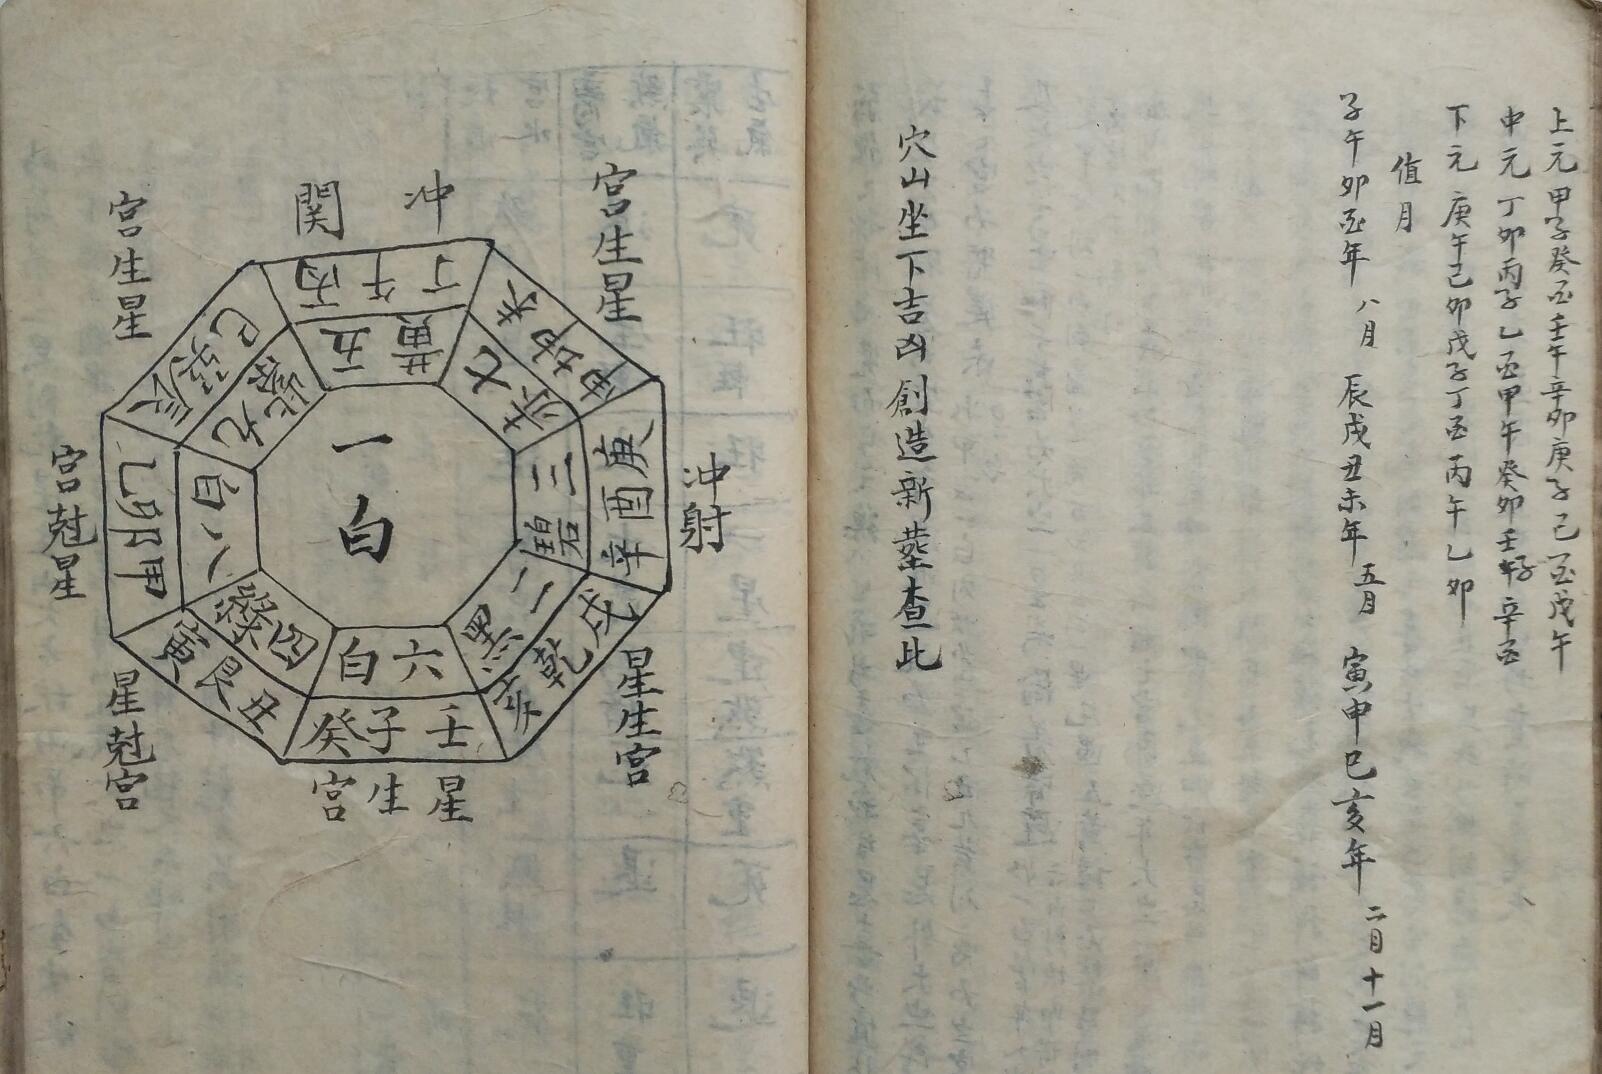 上元 甲子癸酉壬午辛卯庚子己酉戊午
中元 丁卯丙子乙酉甲午癸卯壬子辛酉
下元 庚午己卯戊子丁酉丙午乙卯
值月
子午卯酉年 八月 辰戌丑未年 五月 寅申巳亥年 二月十一月
穴山坐下吉凶創造新塟查此
宮生星
冲
関
宮生星
丁午丙
未坤申
巳巽辰
五黄
七赤
九紫
庚酉辛
三碧
一白
八白
乙卯甲
冲射
宮尅星
二黑
戌乾亥
六白
四綠
壬子癸
丑艮寅
星生宮
星生宮
星尅宮